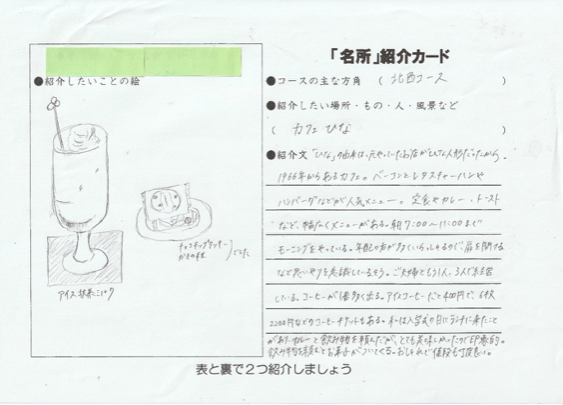 「名所」紹介カード
●紹介したいことの絵
●コースの主な方角 ( 北西コース )
●紹介したい場所・もの・人・風景など
( カフェ ひな )
●紹介文 「ひな」の由来は、元々やっていたお店がひな人形だったから。
1966年からあるカフェ。ベーコンとレタスチャーハンや
ハンバーグなどが人気メニュー。定食やカレー、トースト
など、幅広くメニューがある。朝7:00〜11:00まで
モーニングをやっている。年配の方が多くいらっしゃるので、扉を開ける
など思いやりを意識しているそう。ご夫婦ともう1人、3人で経営
している。コーヒーが1番多く出る。アイスコーヒーだと400円で、6枚
2200円などのコーヒーチケットもある。私は入学式の日にランチに来たこと
があり、カレーと飲み物を頼んだが、とても美味しかったので印象的。
飲み物を頼むとお菓子がついてくる。おしゃれで値段も丁度良い。
チョコチップクッキー
かきの種
でした
アイス抹茶ミルク
表と裏で2つ紹介しましょう